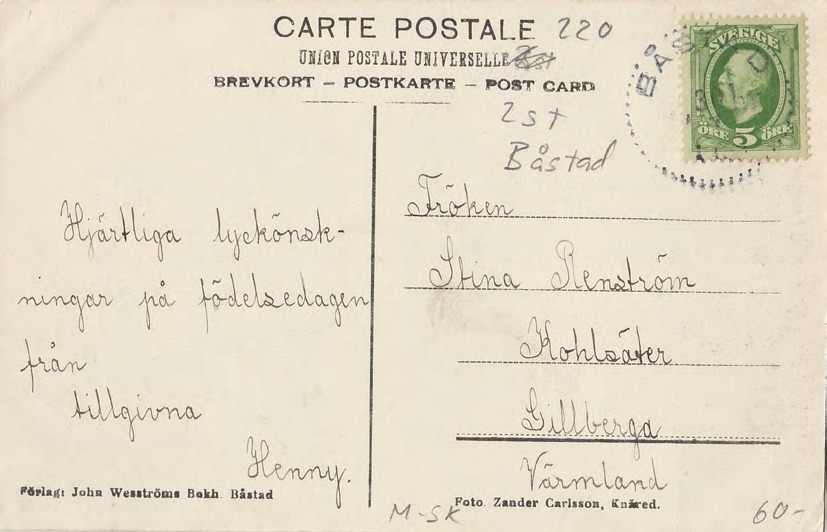 CARTE POSTALE 220
UNION POSTALE UNIVERSELLE
BREVKORT – POSTKARTE – POST CARD
2st
Båstad
SVERIGE
ÖRE 5 ÖRE
BÅSTAD
Hjärtliga lyckönsk-
ningar på födelsedagen
från
tillgivna
Henny.
Fröken
Stina Renström
Kohlsäter
Gillberga
Värmland
Förlag: John Wesströms Bokh. Båstad
Foto. Zander Carlsson, Knäred.
M-SK
60-